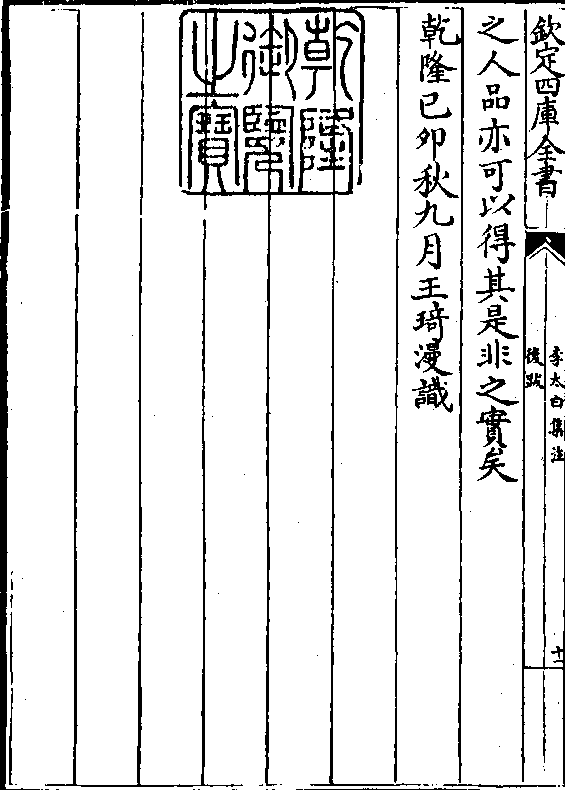 欽定四庫全書
李太白集注
後跋
十一
之人品亦可以得其是非之實矣
乾隆己卯秋九月王琦漫識
乾隆
御覽
之寶